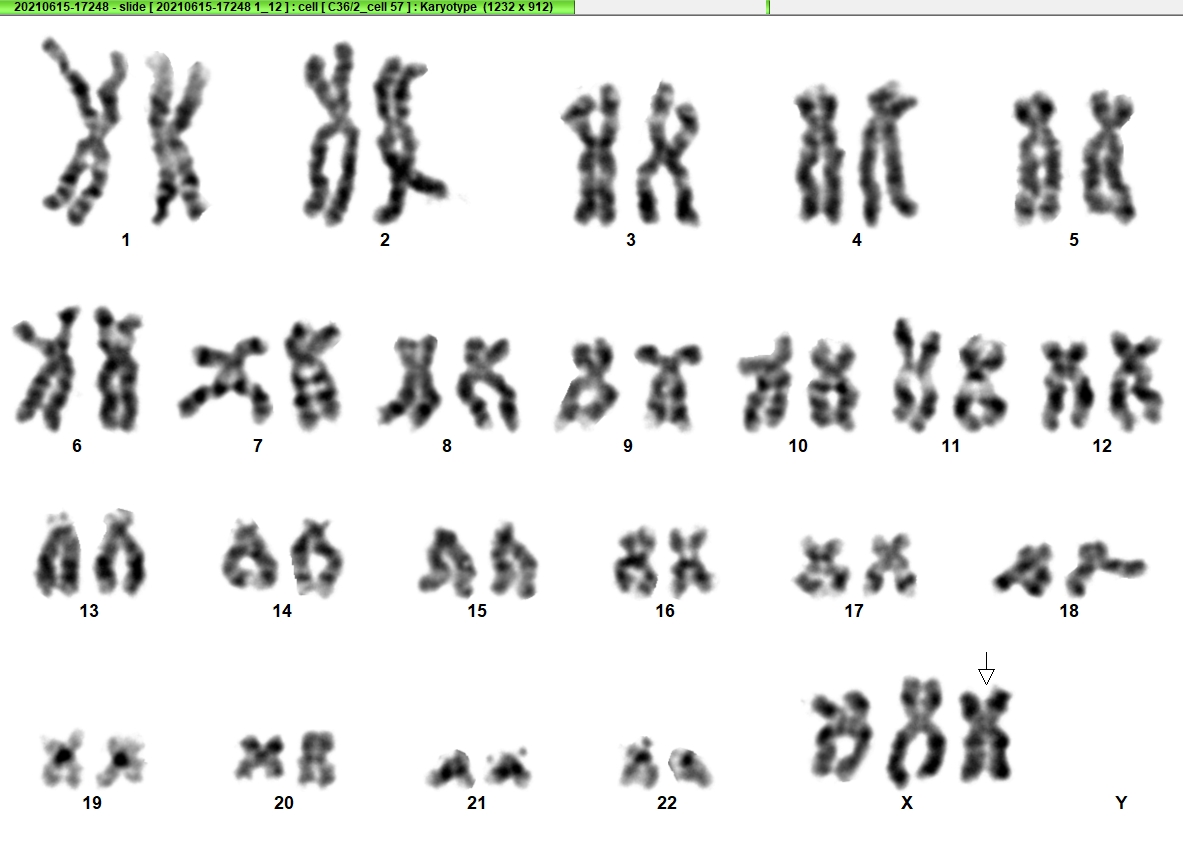 20210615-17248 - slide [ 20210615-17248 1_12 ] : cell [ C36/2_cell 57 ] : Karyotype (1232 x 912)
1 2 3 4 5
6 7 8 9 10 11 12
13 14 15 16 17 18
19 20 21 22 X Y